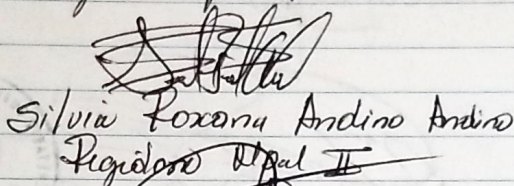 Silvia Roxana Andino Andino
Regidora Mpal II